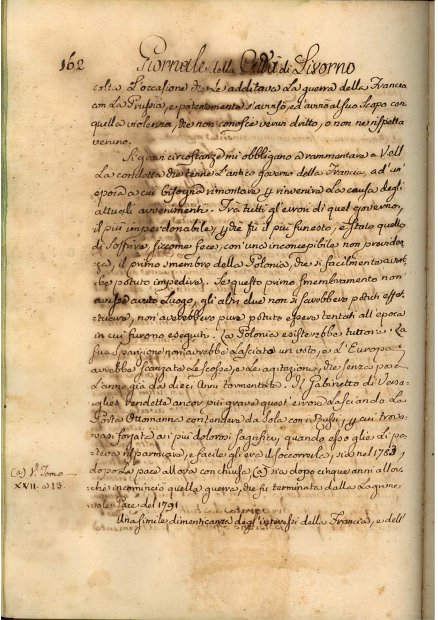 162 Giornale della Città di Livorno
colta l'occasione che le additava la guerra della Francia
con la Prussia, e potentemente s'avvisò, ed avviò al suo scopo con
quella violenza, che non conosce verun dritto, o non ne rispetta
veruno.
Sì gravi circostanze mi obbligano a rammentare a Voi
la condotta che tenne l'antico governo della Francia, ad un'
epoca a cui bisogna rimontare per rinvenire la causa degli
attuali avvenimenti. Fra tutti gl'errori di quel governo,
il più imperdonabile, perchè fù il più funesto, è stato quello
di soffrire, siccome fece, con una inconcepibile non previden
za, il primo smembro della Polonia, che sì facilmente avreb
be potuto impedire. Se questo primo smembramento non
avesse avuto luogo, gli altri due non si sarebbero potuti effet
tuare, non avrebbero pure potuto essere tentati all'epoca
in cui furono eseguiti. La Polonia esisterebbe tuttora. La
sua sparizione non avrebbe lasciato un voto, e l'Europa
avrebbe scanzate le scosse, e le agitazioni, che senza posa
l'anno già da dieci anni tormentata. Il Gabinetto di Versa
glies rendette ancor più grave quest'errore lasciando la
Porta Ottomanna contendere da sola con i Russi, per cui trova
vasi forzata ai più dolorosi sagrifici, quando esso gli le di po
teva risparmiare, e facile gli era di soccorrerla, sia nel 1783
dopo la pace allora conchiusa (a) sia dopo cinque anni allor
chè incominciò quella guerra, che fu terminata dalla lagrime
vole Pace del 1791
Una simile dimenticanza degl'interessi della Francia, e dell'
(a) V. Tomo
XVII. a 13.